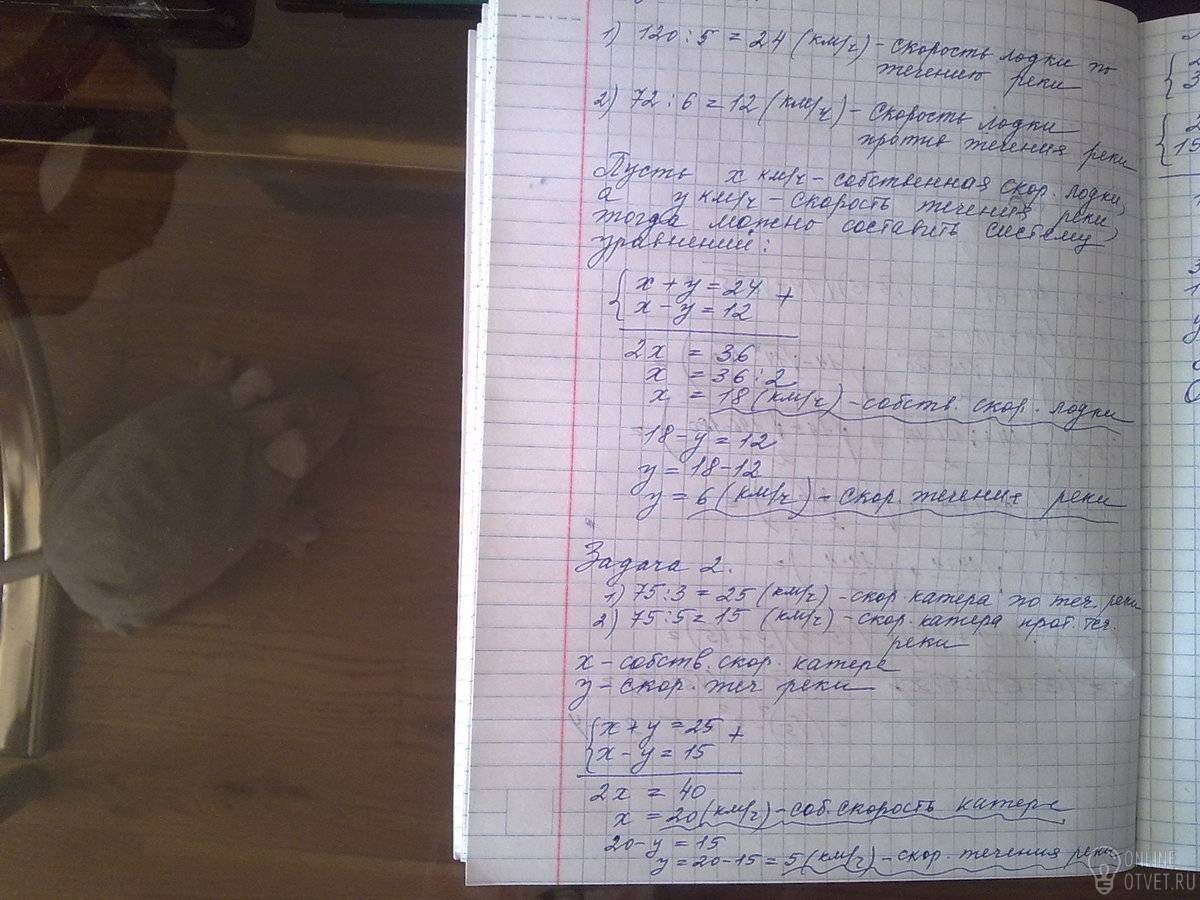 1) 120 : 5 = 24 (км/ч) - скорость лодки по
течению реки
2) 72 : 6 = 12 (км/ч) - скорость лодки
против течения реки
Пусть x км/ч - собственная скор. лодки,
а y км/ч - скорость течения реки,
тогда можно составить систему
уравнений:
{ x + y = 24 +
x - y = 12
2x = 36
x = 36 : 2
x = 18 (км/ч) - собств. скор. лодки
18 - y = 12
y = 18 - 12
y = 6 (км/ч) - скор. течения реки
Задача 2.
1) 75 : 3 = 25 (км/ч) - скор. катера по теч. реки
2) 75 : 5 = 15 (км/ч) - скор. катера прот. теч.
реки
x - собств. скор. катера
y - скор. теч реки
{ x + y = 25 +
x - y = 15
2x = 40
x = 20 (км/ч) - соб. скорость катера
20 - y = 15
y = 20 - 15 = 5 (км/ч) - скор. течения реки
ONLINE
OTVET.RU